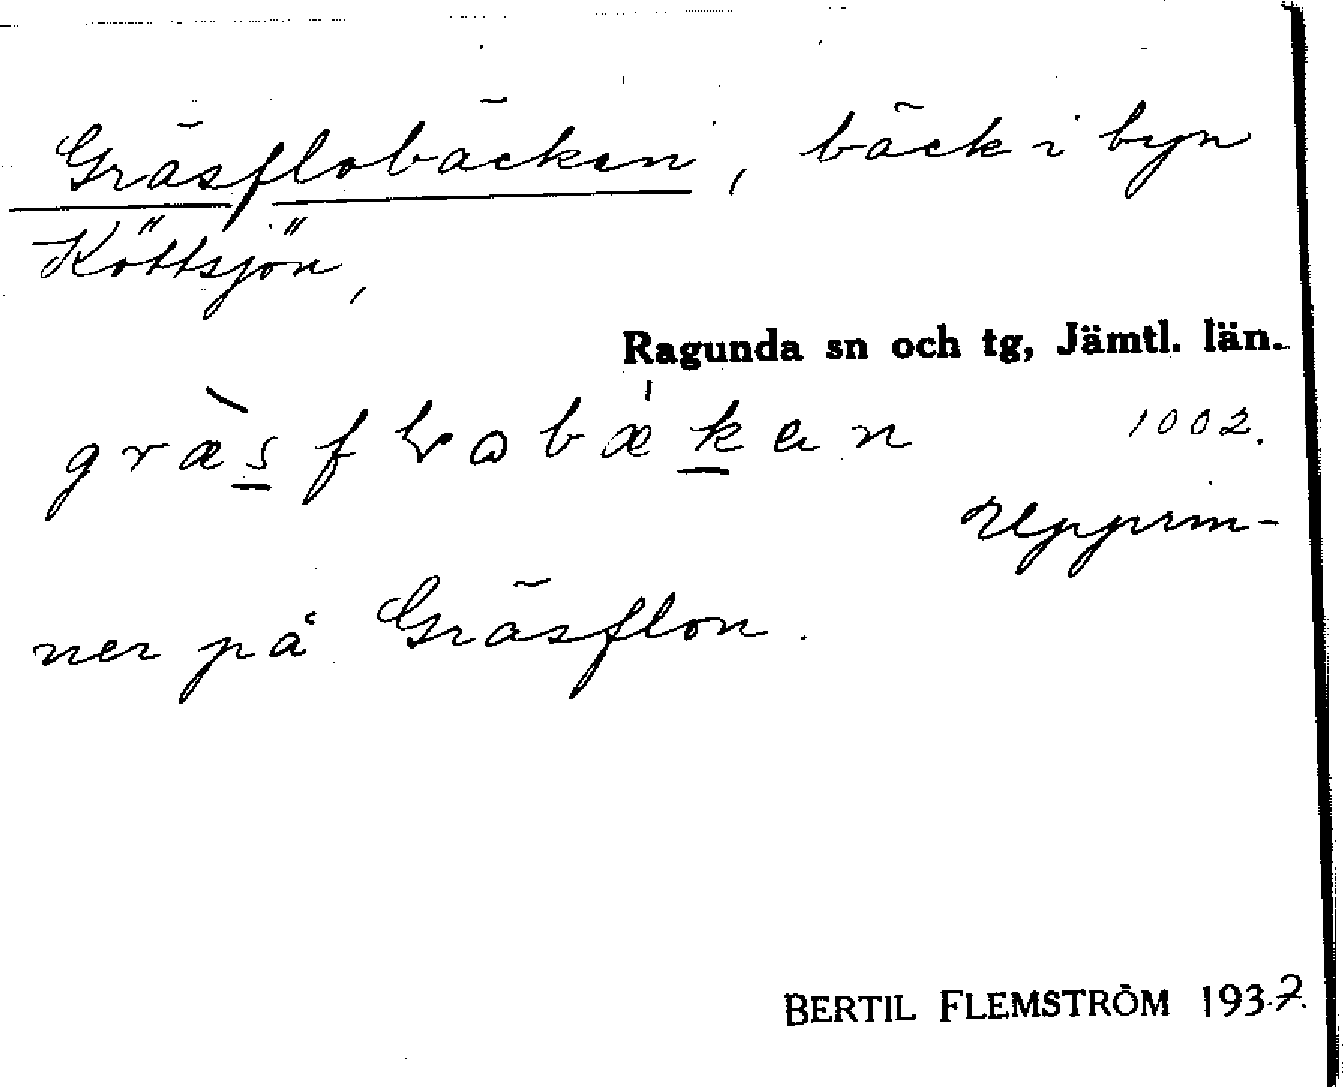 Gräsflobäcken, bäck i byn
Köttsjön,
Ragunda sn och tg, Jämtl. län.
græ̀s̲fɽɷbæ̍k̲en 1002.
Upprin-
ner på Gräsflon.
BERTIL FLEMSTRÖM 1937